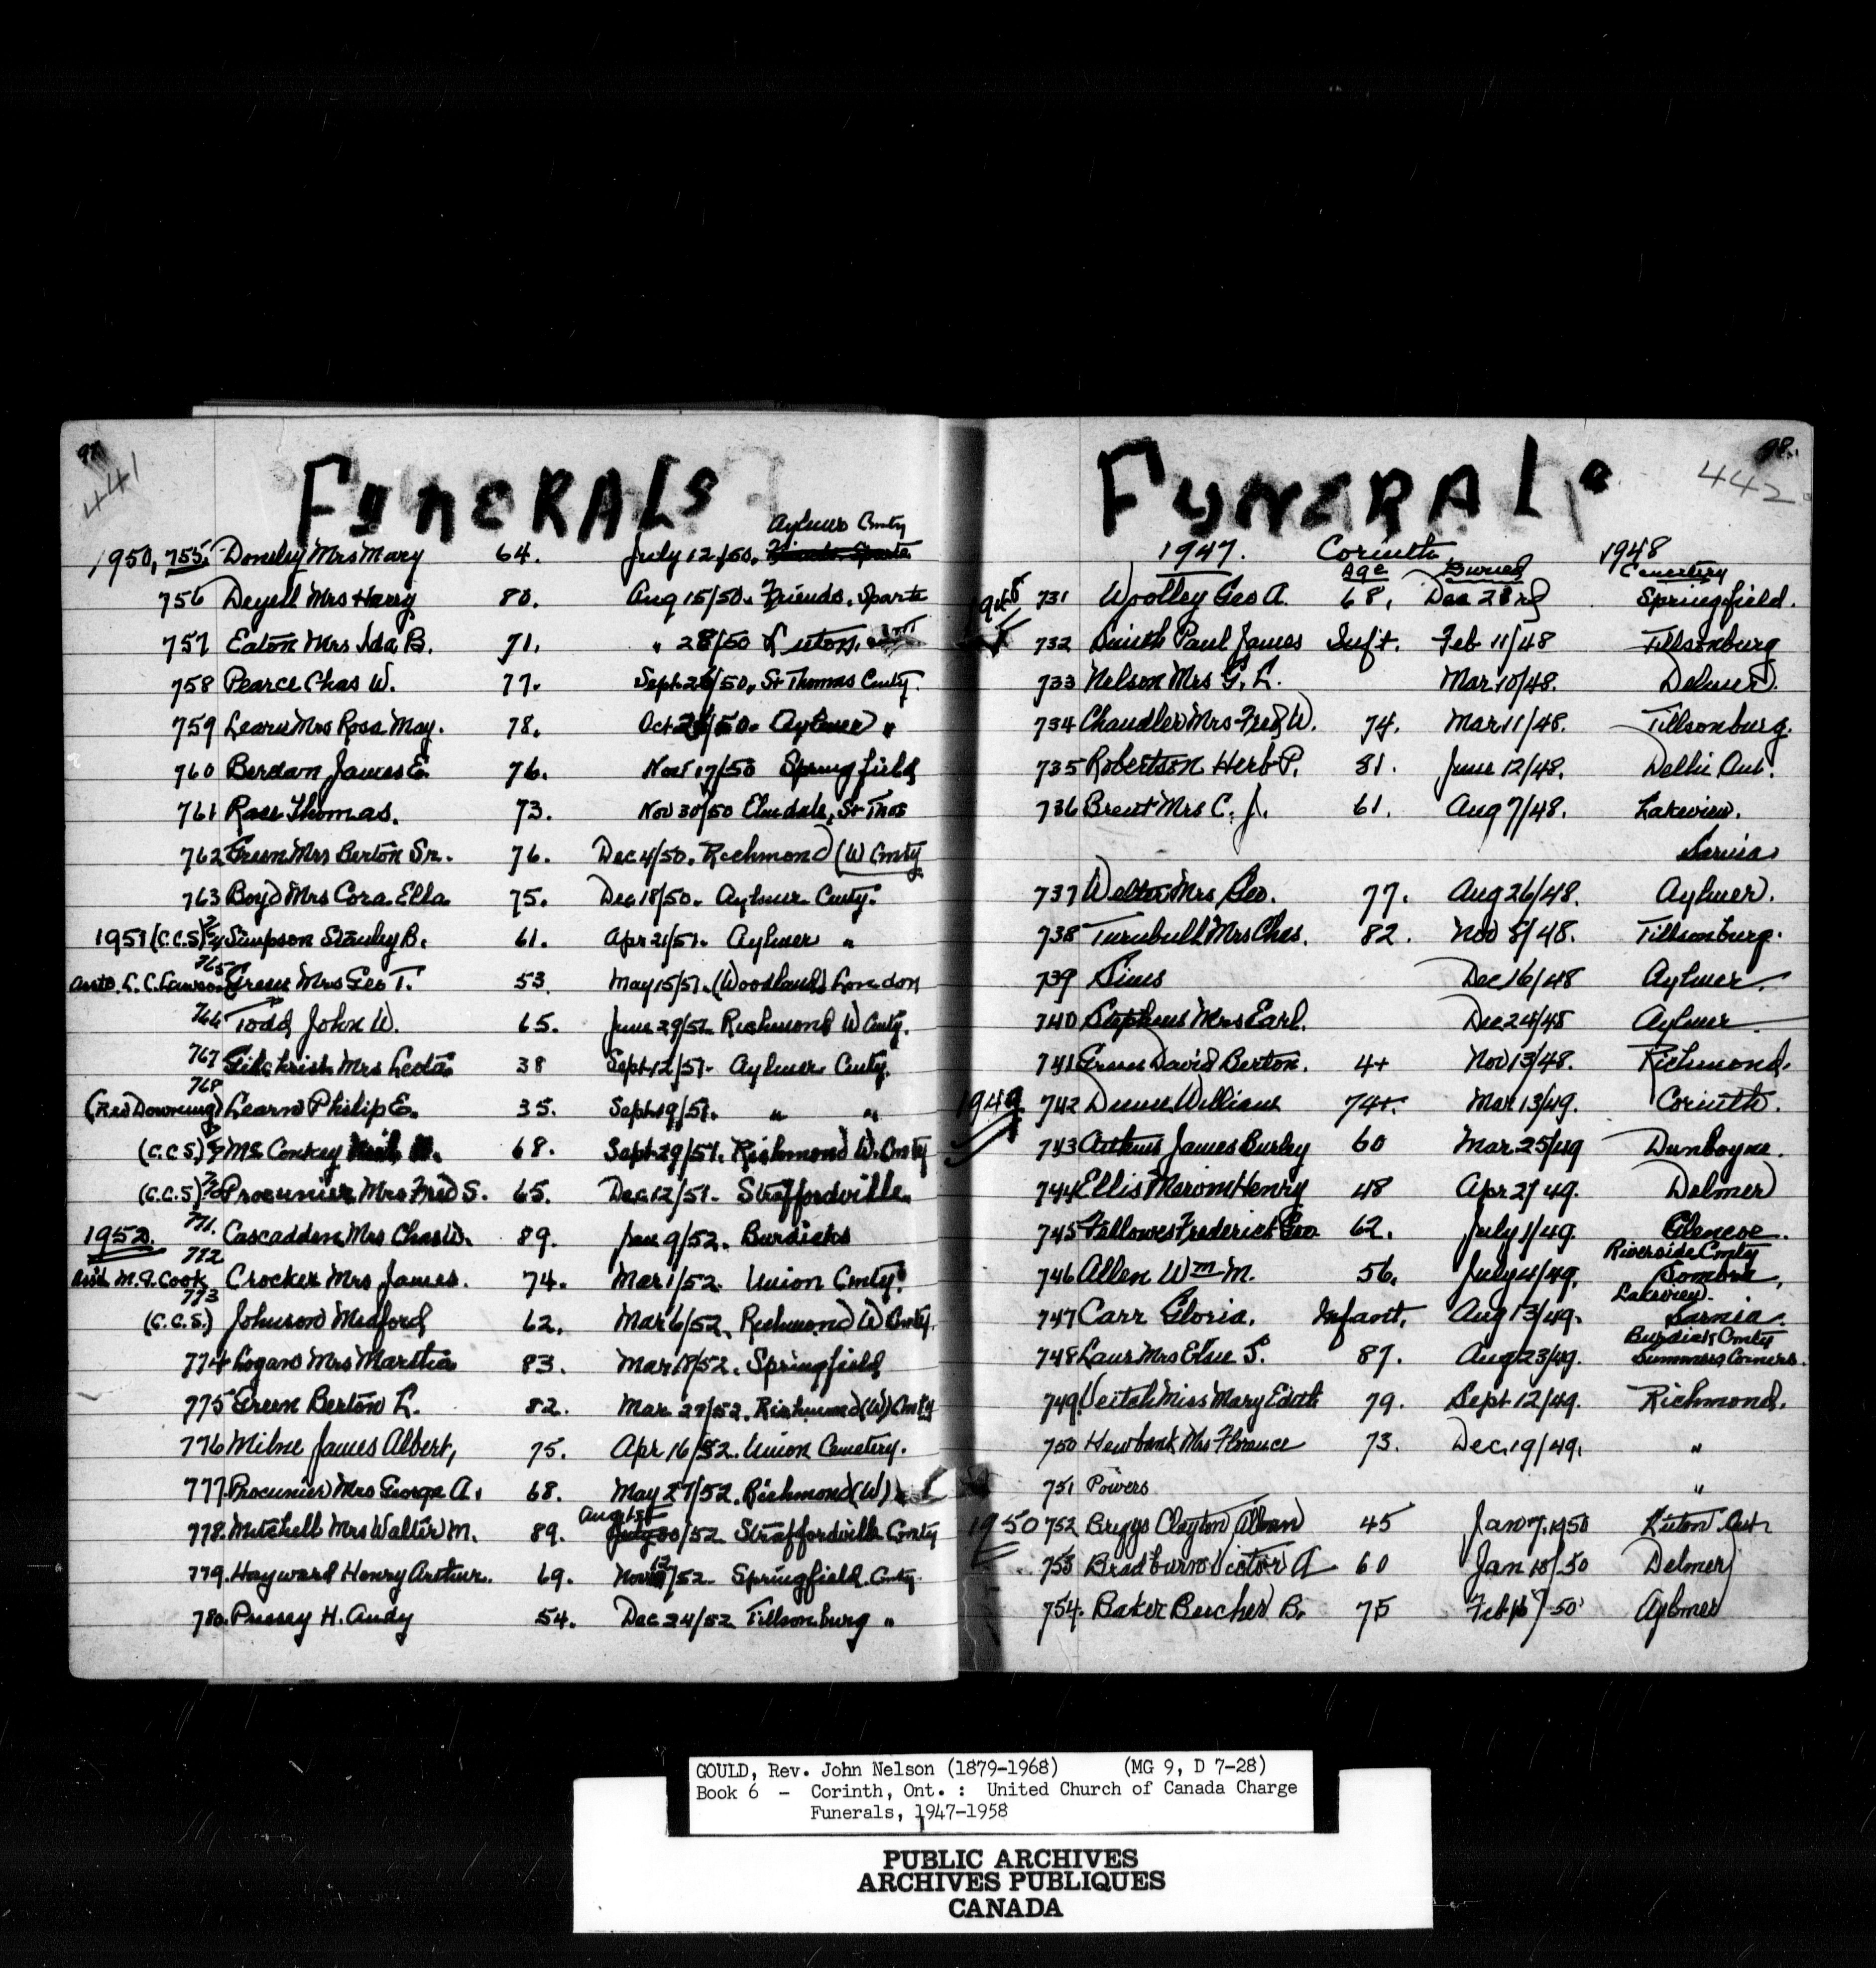 97
441
FUNERALS
Aylmer Cmty
1950, 755. Donely Mrs Mary 64. July 12/50, Friends. Sparta
756 Deyell Mrs Harry 80. Aug 15/50. Friends. Sparta
757 Eaton Mrs Ida B. 71. " 28/50 Luton.
758 Pearce Chas W. 77. Sept 26/50. St Thomas Cmty.
759 Learn Mrs Rosa May. 78. Oct /50. Aylmer "
760 Berdan James E. 76. Nov 17/50 Springfield
761 Race Thomas. 73. Nov 30/50 Elmdale, St Thos
762 Green Mrs Berton Sr. 76. Dec 4/50. Richmond (W Cmty
763 Boyd Mrs Cora Ella 75. Dec 18/50. Aylmer Cmty.
1951 (C.C.S) 764 Simpson Stanley B. 61. Apr 21/51. Aylmer "
765
L.C. Lawson Green Mrs Geo T. 53 May 15/51. (Woodland) London
766 Todd John W. 65. June 29/51. Richmond W Cmty.
767 Gilchrist Mrs Leota 38 Sept 12/51. Aylmer Cmty.
768
(Rev Downing) Learn Philip E. 35. Sept 19/51. " "
(C.C.S.) Mc Conkey 68. Sept 29/51. Richmond W. Cmty
(C.C.S) 770 Procunier Mrs Fred S. 65. Dec 12/51. Straffordville.
1952. 771. Cascadden Mrs Chas W. 89. Jan 9/52. Burdicks
772
Ass'd M.G. Cook Crocker Mrs James. 74. Mar 1/52. Union Cmty.
773
(C.C.S.) Johnson Medford 62. Mar 6/52. Richmond W Cmty.
774 Logan Mrs Martha 83. Mar 18/52. Springfield
775 Green Berton L. 82. Mar 27/52. Richmond (W) Cmty
776 Milne James Albert, 75. Apr 16/52. Union Cemetery.
777. Procunier Mrs George A. 68. May 27/52. Richmond (W) "
Aug 1st
778. Mitchell Mrs Walter M. 89. July 30/52 Straffordville Cmty
779. Hayward Henry Arthur. 69. Nov /52. Springfield. Cmty.
780. Pussey H. Andy 54. Dec 24/52 Tillsonburg "
98.
442
FUNERALS
1947. Corinth 1948
Age Buried Cemetery
1948 731 Woolley Geo A. 68. Dec 28 Springfield.
732 Smith Paul James Inft. Feb 11/48 Tillsonburg
733 Nelson Mrs G. L. Mar 10/48. Delmer.
734 Chandler Mrs Fred W. 74. Mar 11/48. Tillsonburg.
735 Robertson Herb P. 81. June 12/48. Delhi Ont.
736 Brent Mrs C. J. 61. Aug 7/48. Lakeview.
Sarnia
737 Welter Mrs Geo. 77. Aug 26/48. Aylmer.
738 Turnbull Mrs Chas. 82. Nov 8/48. Tillsonburg.
739 Sims Dec 16/48 Aylmer.
740 Stephens Mrs Earl. Dec 24/48 Aylmer
741 Green David Berton. 4+ Nov 13/48. Richmond.
1949 742 Dunn William 74+. Mar 13/49. Corinth.
743 James Burley 60 Mar 25/49 Dunboyne.
744 Ellis Marom Henry 48 Apr 2/49. Delmer
745 Fellowes Frederick Geo. 62. July 1/49. Glencoe.
Riverside Cmty
746 Allen Wm M. 56. July 4/49. Sombra,
Lakeview.
747 Carr Gloria. Infant. Aug 13/49. Sarnia.
Burdick Cmty
748 Laur Mrs Elsie S. 87. Aug 23/49. Summers Corners.
749. Veitch Miss Mary Edith 79. Sept 12/49. Richmond.
750 Hewbank Mrs Florence 73. Dec. 19/49. "
751 Powers "
1950 752 Briggs Clayton Alban 45 Jan 7. 1950 Luton Ont
753 Bradburn Victor A 60 Jan 18/50 Delmer
754. Baker Beecher B. 75 Feb 16/50 Aylmer
GOULD, Rev. John Nelson (1879-1968) (MG 9, D 7-28)
Book 6 - Corinth, Ont. : United Church of Canada Charge
Funerals, 1947-1958
PUBLIC ARCHIVES
ARCHIVES PUBLIQUES
CANADA